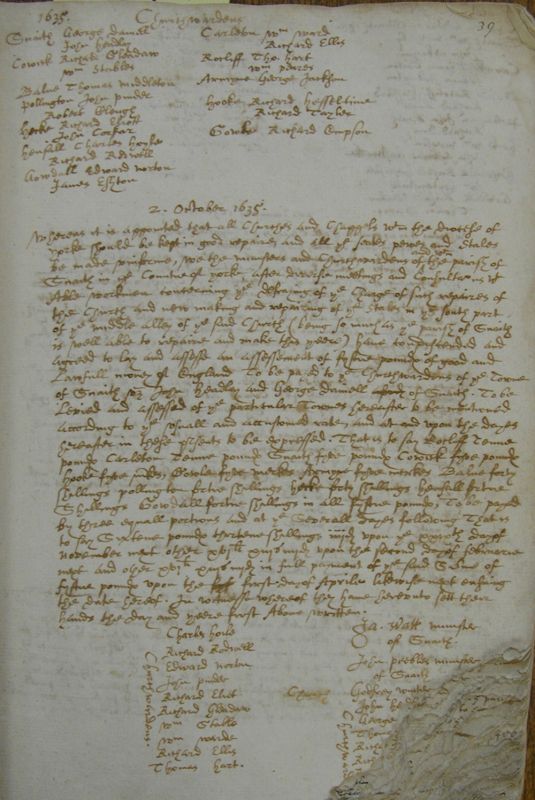 1635. Churchwardens 39
Snaith George Daniell
John Headley
Cowick Richard Gleadaw
Wm Stables
Balne Thomas Middleton
Pollington John Puder
Robert Clough
Hecke Richard Eliott
John
Hensall Charles Houle
Richard Rodwell
Gowdall Edward Norton
James
Carleton Wm Ward
Richard Ellis
Rocliff Tho. Hart
Wm
Armyne George Jackson
Hooke Richard Hesseltine
Richard Tayler
Gowle Richard Empson
2. October 1635.
Whereas it is appointed that all Churches and Chappels wth the diocesse of
Yorke should be kept in good repaire and all ye seates pewes and Stales
be made uniforme, we the ministers and Churchwardens of the parish of
Snaith in ye Countie of yorke after diverse meetings and Consultations wt
Able workmen concerning ye defraying of ye Charge of such repaires of
the Church and new making and repairing of ye stales in ye south part
of ye middle alley of ye said Church (being so much as ye parish of Snaith
is well able to repaire and make this yeere) have and
agreed to lay and assesse an assessement of fiftie pounds of good and
Lawfull money of England To be paied to ye Churchwardens of ye Towne
of Snaith John Headley and George Daniell of Snaith. To be
Levied and assessed of ye particular Townes hereafter to be mentioned
according to ye usuall and accustomed rate, and at and upon the dayes
hereafter in these psents to be expressed. That is to say Rocliff Tenne
pounds Carleton Tenne pounds Snaith fyve pounds Cowick fyve pounds
Hooke fyve markes, Gowle fyve markes Armyne fyve markes Balne forty
shillings pollington fortie shillings Hecke forty shillings Hensall fortie
Shillings Gowdall fortie shillings in all fiftie pounds, To be payed
by three equall portions and at ye Severall dayes following That is
to say Sixteene pounds thirteene shillings iiijd upon ye day of
November next other xvjli xiijs iiijd upon the second day of februarie
next and other xvjli xiijs iiijd in full paiment of ye said Sume of
fiftie pounds upon the first day of Aprill likewise next ensuing
the date hereof. In witnesse whereof they have hereunto sett their
hands the day and yeere first Above written.
Charles Houle
Richard Rodwell
Edward Norton
John Puder
Richard Eliott
Richard Gleadaw
Wm Stables
Wm Warde
Richard Ellis
Thomas Hart.
Churchwardens.
Ja. Watt minister
of Snaith
John Peebles minister
of Snaith
Godfrey
John
George
Thomas
Richard